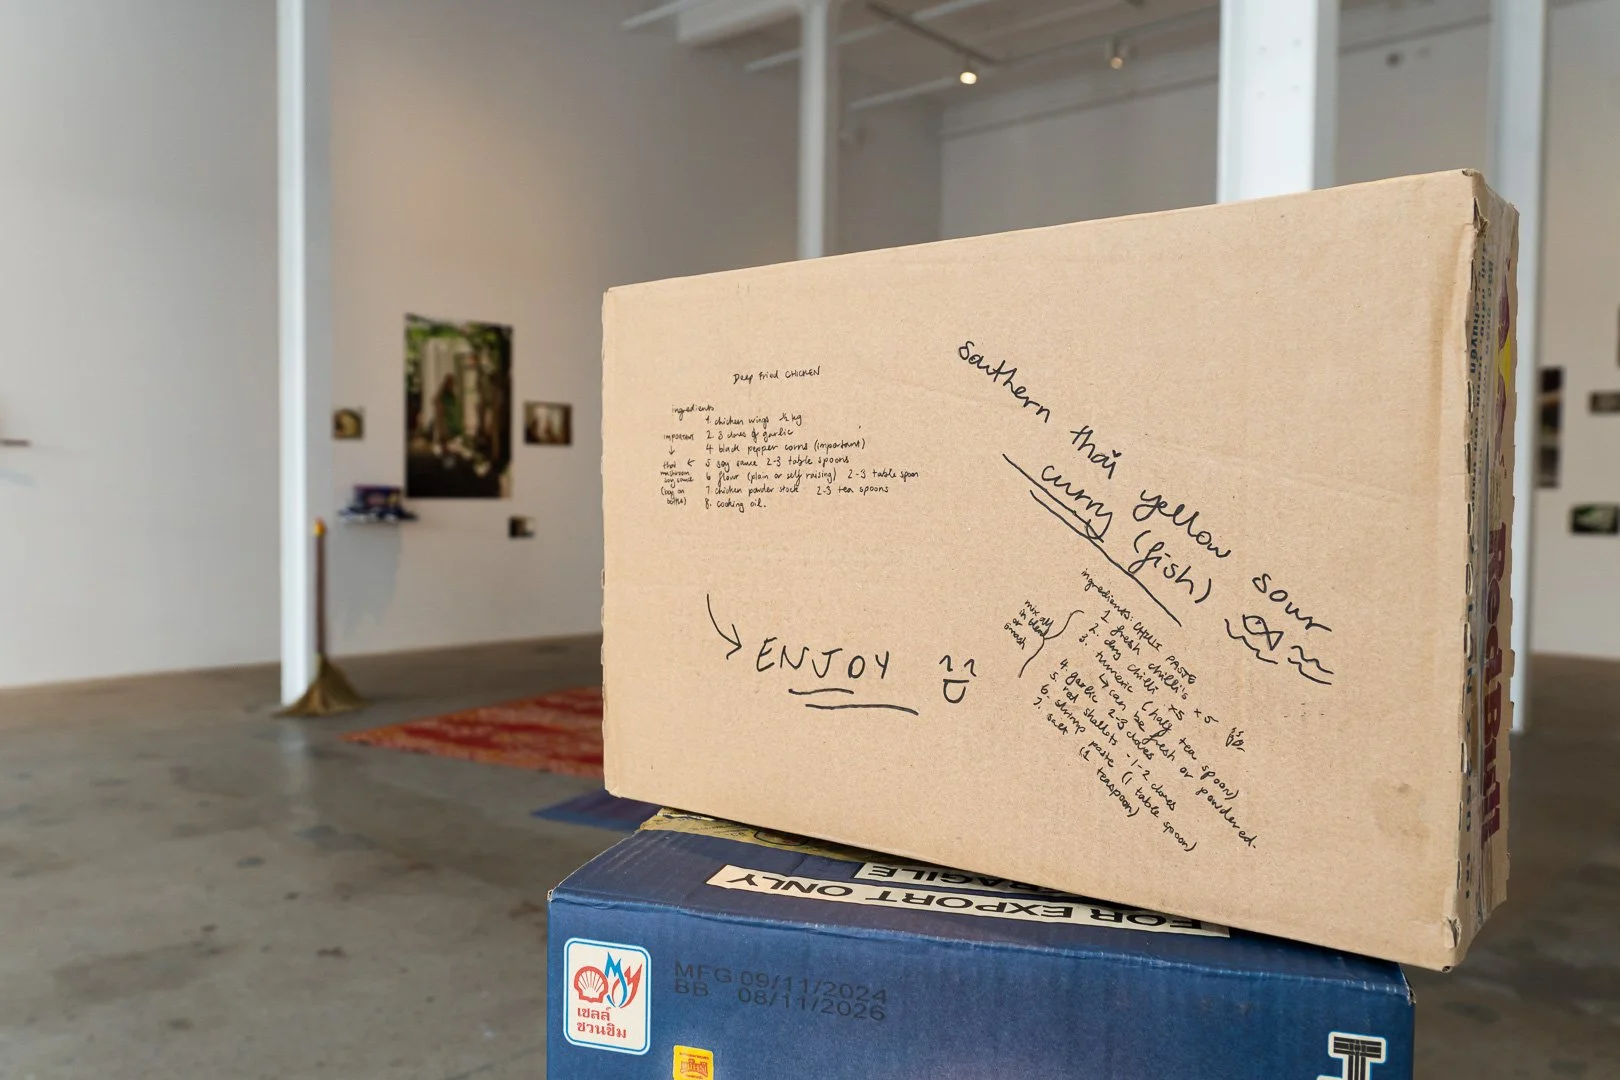 Deep Fried CHICKEN
ingredients
1. chicken wings ½ kg
2. 3 cloves of garlic
4 black pepper corns (important)
5 soy sauce 2-3 table spoons
6 flour (plain or self raising) 2-3 table spoon
7. chicken powder stock 2-3 tea spoons
8. cooking oil.
important
thai
mushroom
soy sauce
(boy on
bottle)
ENJOY
Southern thai yellow sour
curry (fish)
ingredients: CHILLI PASTE
1 fresh chilli's x 5
2. dry chilli x5
3. turmeric (half tea spoon)
↳ can be fresh or powdered.
4. garlic 2-3 cloves
5. red shallots - 1-2 cloves
6. shrimp paste (1 table spoon)
7. salt (1 teaspoon)
mix all
in blender
or
smash
FRAGILE
FOR EXPORT ONLY
MFG 09/11/2024
BB 08/11/2026
เชลล์
ชวนชิม
Red Boat